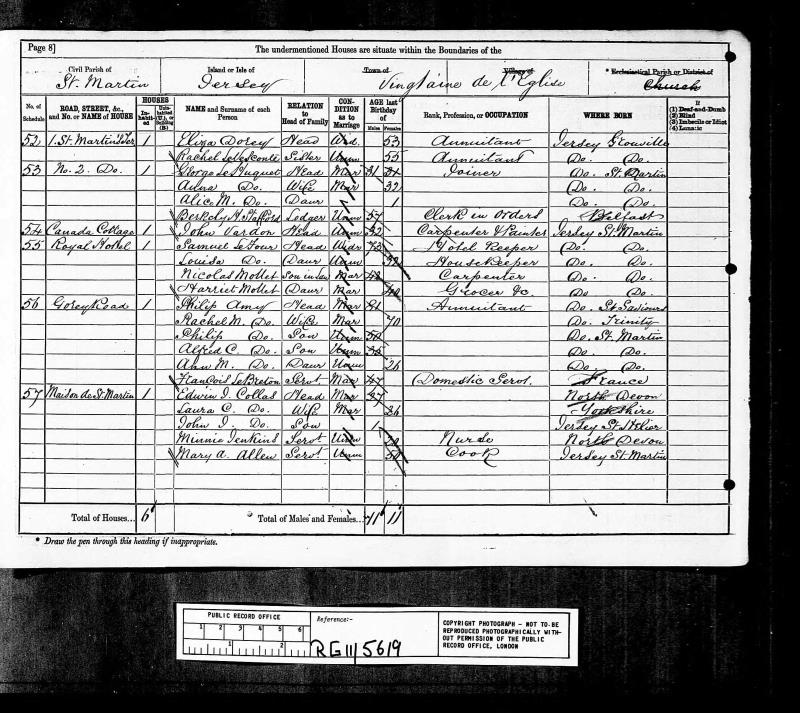 Page 8]
The undermentioned Houses are situate within the Boundaries of the
Civil Parish of St. Martin
Island or Isle of Jersey
Town of
Village of
Vingtaine de l'Eglise
* Ecclesiastical Parish or District of Church
No. of Schedule
ROAD, STREET, &c., and No. or NAME of HOUSE
HOUSES
Inhabited
Uninhabited (U.), or Building (B.)
NAME and Surname of each Person
RELATION to Head of Family
CONDITION as to Marriage
AGE last Birthday of
Males
Females
Rank, Profession, or OCCUPATION
WHERE BORN
If
(1) Deaf-and-Dumb
(2) Blind
(3) Imbecile or Idiot
(4) Lunatic
52 1. St. Martin's Ter 1 Eliza Dorey Head Wid. 53 Annuitant Jersey Grouville
Rachel Sister Unm 55 Annuitant Do. Do.
53 No. 2. Do. 1 George Le Huquet Head Mar 31 Joiner Do. St. Martin
Do. Wife Mar 32 Do. Do.
Alice M. Do. Daur 1 Do. Do.
H. Stafford Lodger Unm 57 Clerk in Orders Belfast
54 Canada Cottage 1 John Vardon Head Unm 52 Carpenter & Painter Jersey St. Martin
55 Royal Hotel 1 Samuel Le Four Head Widr 73 Hotel Keeper Do. Do.
Louisa Do. Daur Unm 39 HouseKeeper Do. Do.
Nicolas Mollet Son in law Mar 48 Carpenter Do. Do.
Harriet Mollet Daur Mar 40 Grocer &c. Do. Do.
56 Gorey Road 1 Philip Amy Head Mar 81 Annuitant Do. St. Saviours
Rachel M. Do. Wife Mar 70 Do. Trinity
Philip Do. Son Unm Do. St. Martin
Alfred C. Do. Son Unm Do. Do.
Ann M. Do. Daur Unm 26 Do. Do.
François Le Breton Servt Mar 47 Domestic Servt. France
57 Maison de St. Martin 1 Edwin J. Collas Head Mar 47 North Devon
Laura C. Do. Wife Mar 36 Yorkshire
John J. Do. Son 1 Jersey St. Helier
Minnie Jenkins Servt Unm 20 Nurse North Devon
Mary A. Allen Servt Unm 50 Cook Jersey St. Martin
Total of Houses... 6
Total of Males and Females... 11 11
* Draw the pen through this heading if inappropriate.
PUBLIC RECORD OFFICE
1 2 3 4 5 6
1 2
Reference:-
RG 11/5619
COPYRIGHT PHOTOGRAPH - NOT TO BE REPRODUCED PHOTOGRAPHICALLY WITHOUT PERMISSION OF THE PUBLIC RECORD OFFICE, LONDON